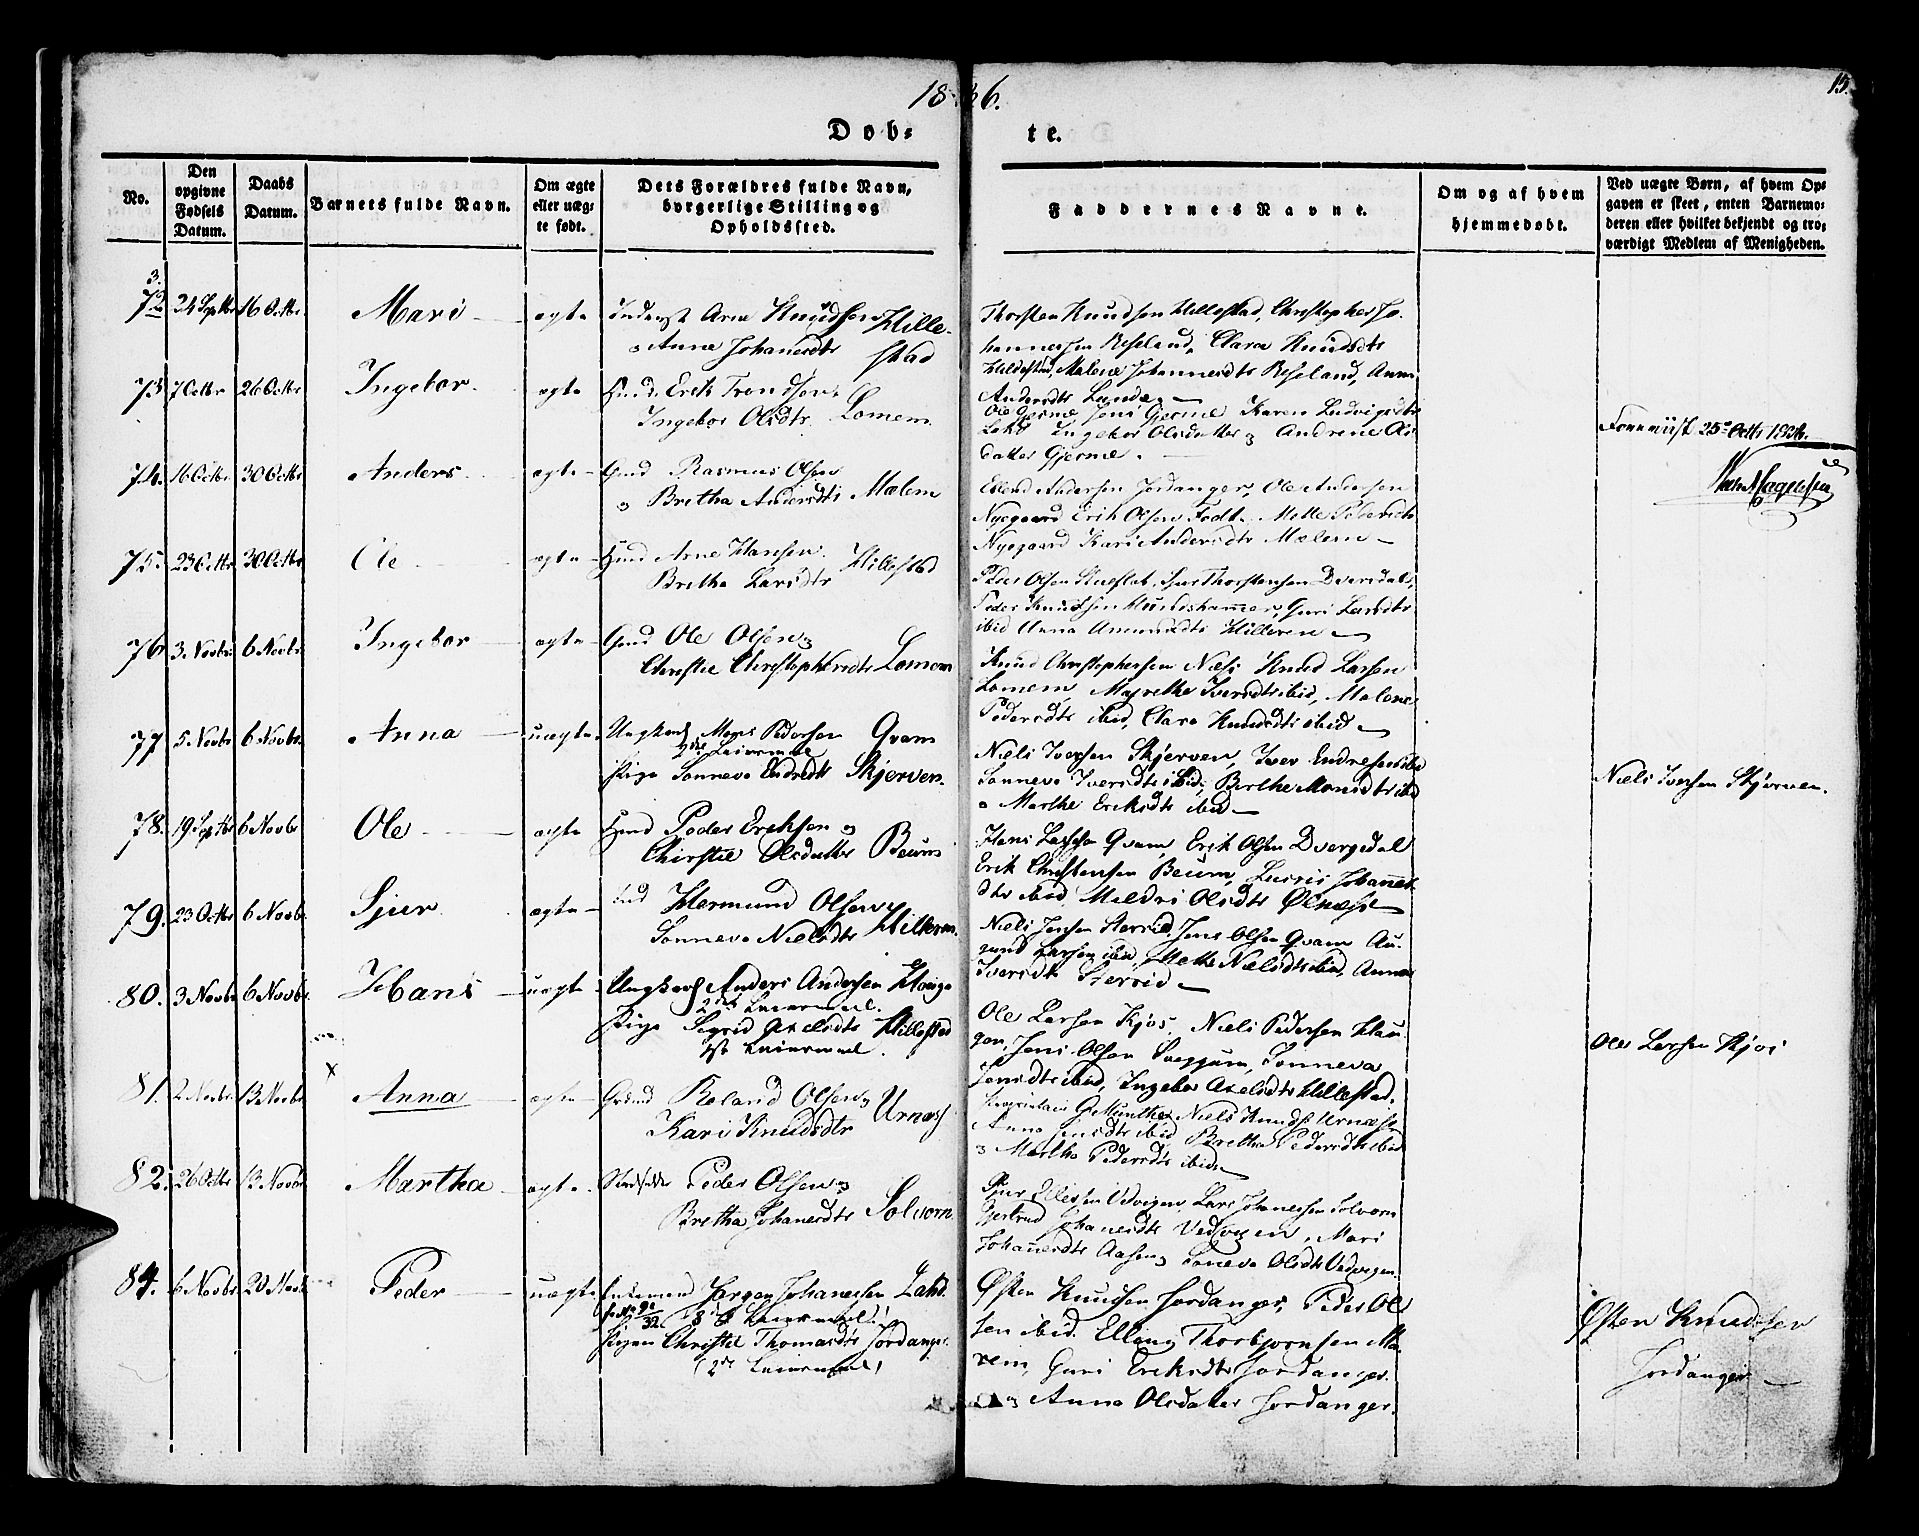 18 6.
15.
Døb-
te.
No.
Den opgivne Fødsels Datum.
Daabs Datum.
Barnets fulde Navn.
Om ægte eller uægte født.
Dets Forældres fulde Navn, borgerlige Stilling og Opholdssted.
Faddernes Navne.
Om og af hvem hjemmedøbt.
Ved uægte Børn, af hvem Opgaven er skeet, enten Barnemoderen eller hvilket bekjendt og troværdigt Medlem af Menigheden.
72 24 Septbr 16 Octbr Mari ægte Arne Knudsen Hille-
Anne Johanesdtr stad
Thorsten Knudsen Hillestad, Christopher Jo-
hannessen Reseland, Clara Knudsdtr
Hillestad, Malene Johannesdtr Reseland, Anna
Andersdtr Lunde
73 7 Octbr 26 Octbr Ingebor ægte Gmd. Erik Trondsen
Ingebor Olsdtr Lomem
Ole Gjerme Jens Gjerme Karen Ludvigsdtr
Lahd Ingebor Olsdatter Andrene Ols
datter Gjerme.
25de Octbr 1826.
74. 16 Octbr 30 Octbr Anders ægte Gmd Rasmus Olsen
Bretha Andersdtr Molem
Ellend Andersen Jordanger, Ole Andersen
Nyegaard Erik Olsen Fodt. Mette Pedersdtr
Nyegaard Kari Andersdtr Molem
75. 23 Octbr 30 Octbr Ole ægte Hmd Arne Hansen
Bretha Larsdtr Hillestad
Peder Olsen Sjur Thorstensen Dversdal,
Peder Knudsen Guri Larsdtr
ibid Anna Amundsdtr Hilleren
76 3. Novbr 6 Novbr Ingebor ægte Gmd Ole Olsen
Christie Christophersdtr Lomem
Knud Christophersen Næss Knud Larsen
Lomem, Magrethe Iversdtr ibid, Malene
Pedersdtr ibid, Clara Knudsdtr ibid
77 5 Novbr 6 Novbr. Anna uægte Ungkarl Mons Pedersen Qvam
2det Leiermaal
Pige Sønneva Endredtr Skjerven.
Niels Iversen Skjerven, Iver Endresen ibid
Sønneva Iversdtr ibid, Berthe Monsdtr ibid
Marthe Eriksdtr ibid
Niels Iversen Skjerven.
78. 19 Septbr 6 Novbr Ole ægte Hmd Peder Eriksen
Christie Olsdatter Beum
Hans Larsen Qvam, Erik Olsen Dvergedal
Erik Christensen Beum, Johannes-
dtr ibid, Meldri Olsdtr Ølnæss
79. 23 Octbr 6 Novbr. Sjur ægte Hermund Olsen
Sønneva Nielsdtr Hilleren.
Niels Jensen Jens Olsen Qvam Au-
gund Larsen ibid, Mette Nielsdtr ibid, Anna
Iversdtr
80. 3 Novbr 6 Novbr. Hans uægte Ungkarl Anders Andersen Houge
2det Leiermaal.
Pige Sigrid Axelsdtr Hillestad
1st Leiermaal.
Ole Larsen Kjos, Niels Pedersen Hau-
gen, Jens Olsen Sveggum, Sønneva
Jensdtr ibid, Ingebor Axelsdtr Hillestad.
Ole Larsen Kjos
81. 2 Novbr. 13 Novbr. x Anna ægte Grund Roland Olsen
Kari Knudsdtr Urnæs
G Munthe, Niels Knuds Urnæs
Anna Jensdtr ibid Bretha Pedersdtr ibid
Martha Pedersdtr ibid
82. 26 Octbr 13 Novbr Martha ægte Peder Olsen
Bretha Johanesdtr Solvorn
Sjur Vedvigen, Lars Johanessen Solvorn
Gjertrud Johanesdtr Vedvigen, Mari
Johanesdtr Aasen Sønneva Olsdtr Vedvigen.
84. 6 Novbr 20 Novbr Peder uægte Enkemand Jørgen Johanessen Lahd.
3die Leiermaal!
Pigen Christie Thomasdtr Jordanger.
(2det Leiermaal)
Østen Knudsen Jordanger, Peder Ol-
sen ibid. Elleng Thorbjørnsen Ma-
rem, Guri Eriksdtr Jordanger.
Anna Olsdatter Jordanger.
Østen Knudsen
Jordanger